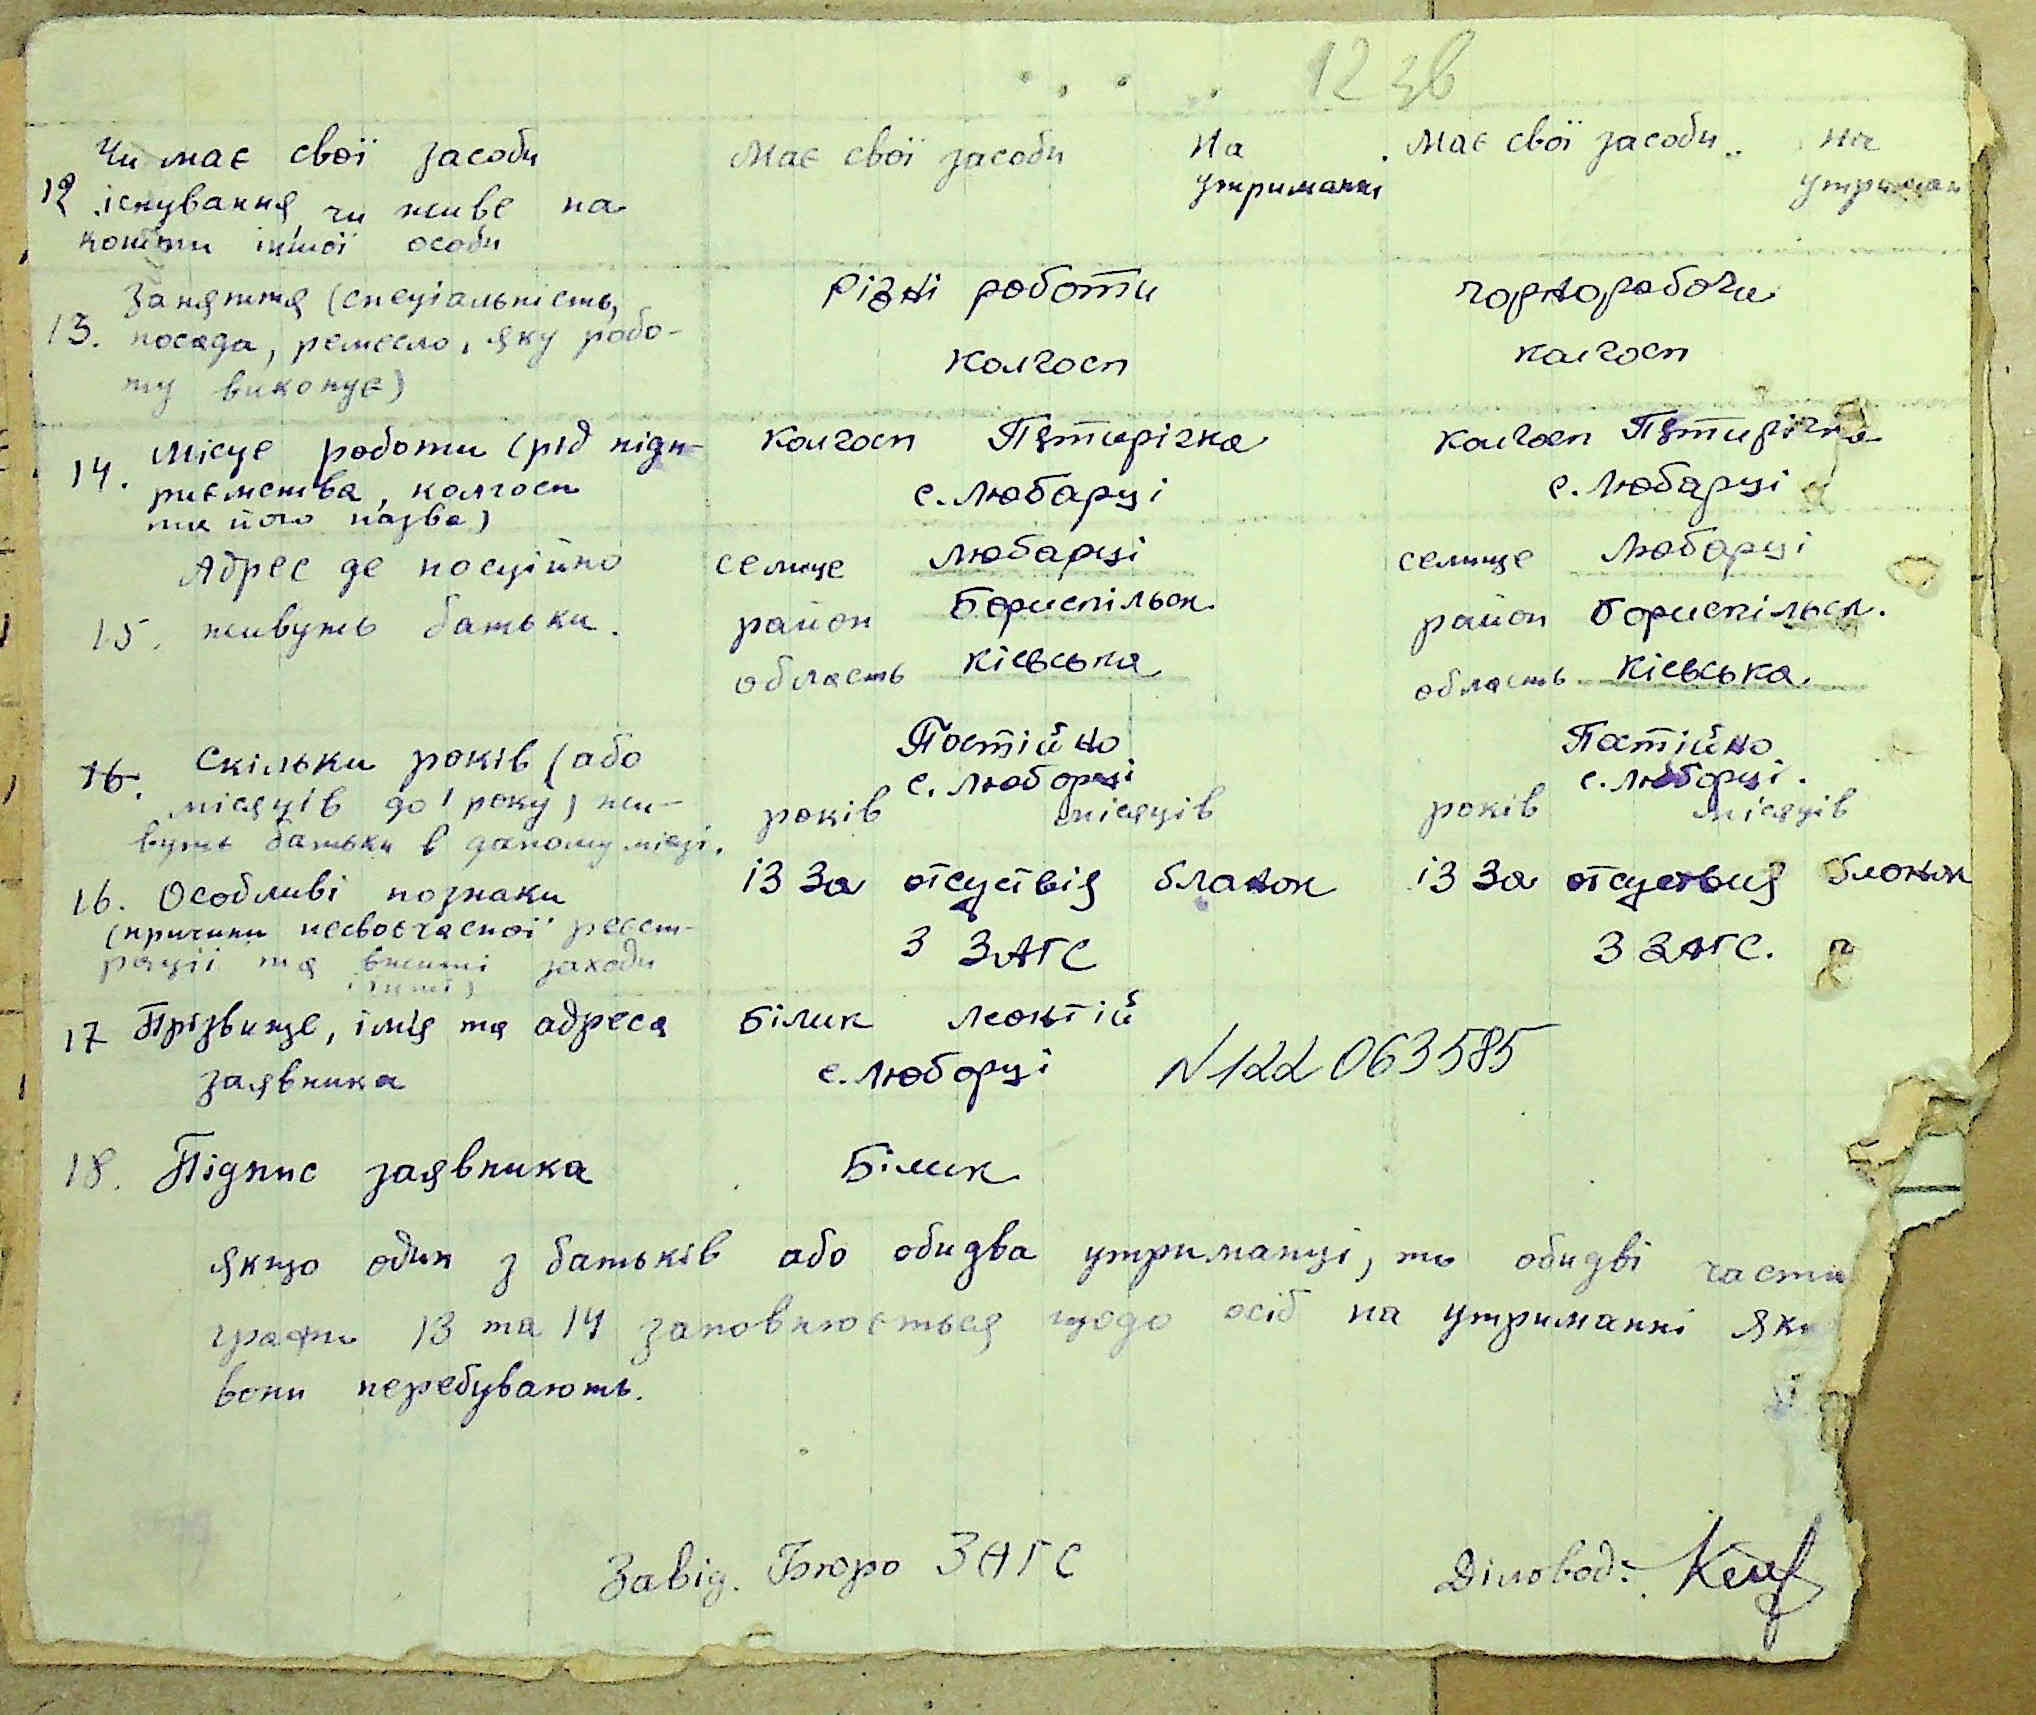 12 зв
Чи має свої засоби
12 існування, чи живе на
кошти іншої особи
Має свої засоби На
утриманні
Має свої засоби на
утриман
13. Заняття (спеціальність,
посада, ремесло, яку робо-
ту виконує)
Різні роботи
колгосп
чорноробочи
колгосп
14. Місце роботи (рід підп-
риємства, колгосп
та його назва)
колгосп Пятирічка
с. Любарці
колгосп Пятирічка
с. Любарці
Адрес де посційно
15. живуть батьки.
селище Любарці
район Бориспільск.
область Кієвська
селище Любарці
район Бориспільск.
область Кієвська.
16. Скільки років (або
місяців до 1 року) жи-
вуть батьки в даному місці.
Постійно
с. Люборці
років місяців
Постійно
с. Люборці.
років місяців
16. Особливі познаки
(причини несвоєчасної реєст-
рації та вжиті заходи
і инші)
ІЗ За отсуствія бланок
З ЗАГС
ІЗ За отсуствия бланок
З ЗАГС.
17 Прізвище, імія та адреса
заявника
Білик Леонтій
с. Люборці
N122 063585
18. Підпис заявника
Білик
Якщо один з батьків або обидва утриманці, то обидві части
графи 13 та 14 заповнюється щодо осіб на утриманні яки
вони перебувають.
Завід. Бюро ЗАГС
Діловод: